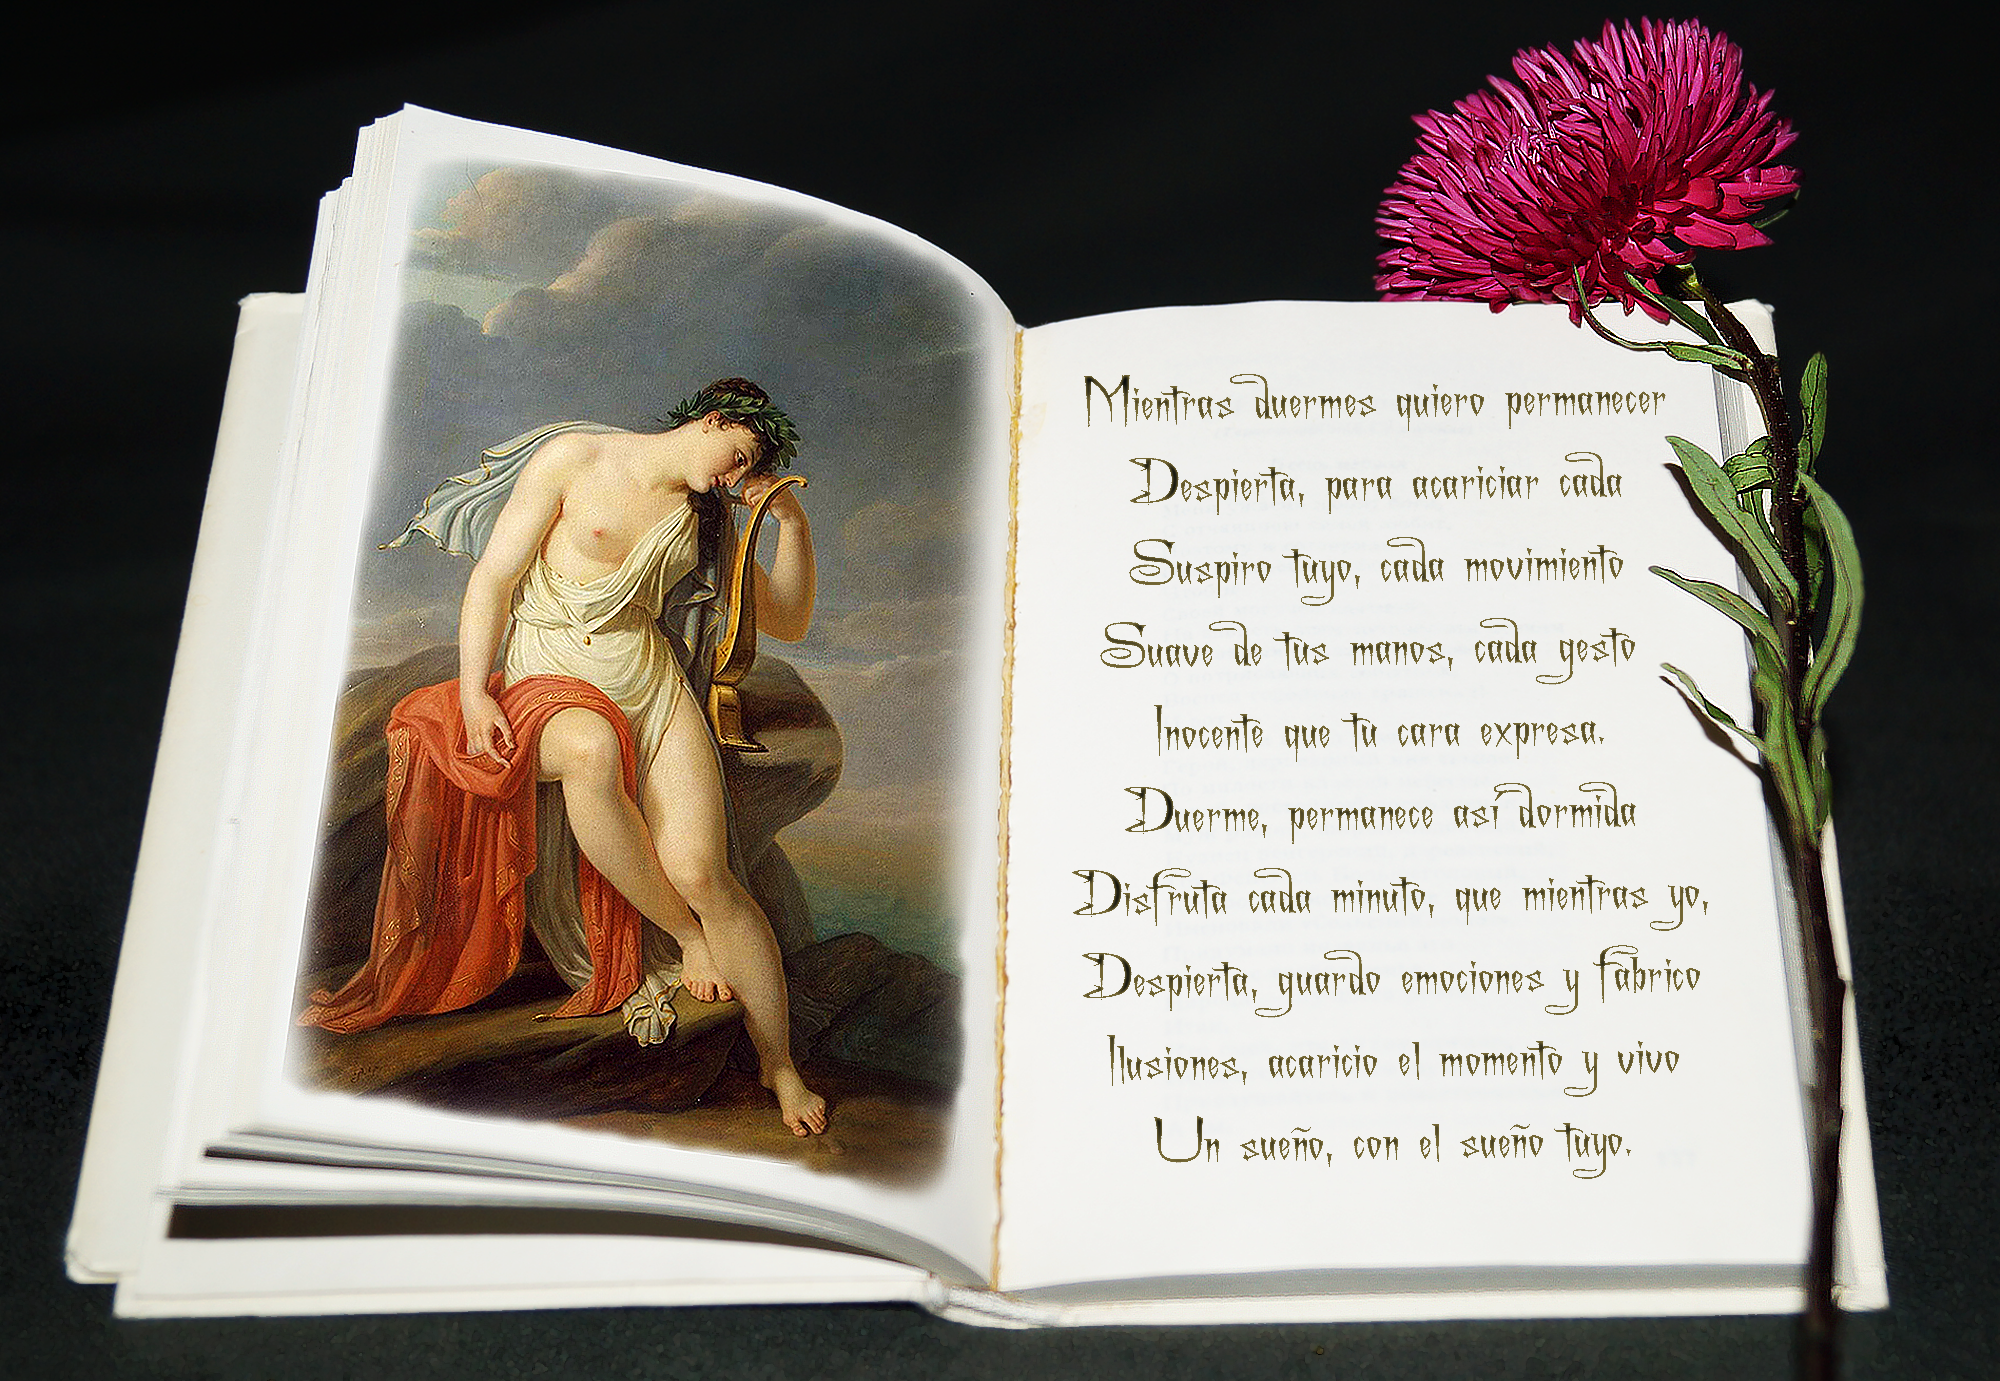 Mientras duermes quiero permanecer
Despierta, para acariciar cada
Suspiro tuyo, cada movimiento
Suave de tus manos, cada gesto
Inocente que tu cara expresa.
Duerme, permanece así dormida
Disfruta cada minuto, que mientras yo,
Despierta, guardo emociones y fabrico
Ilusiones, acaricio el momento y vivo
Un sueño, con el sueño tuyo.